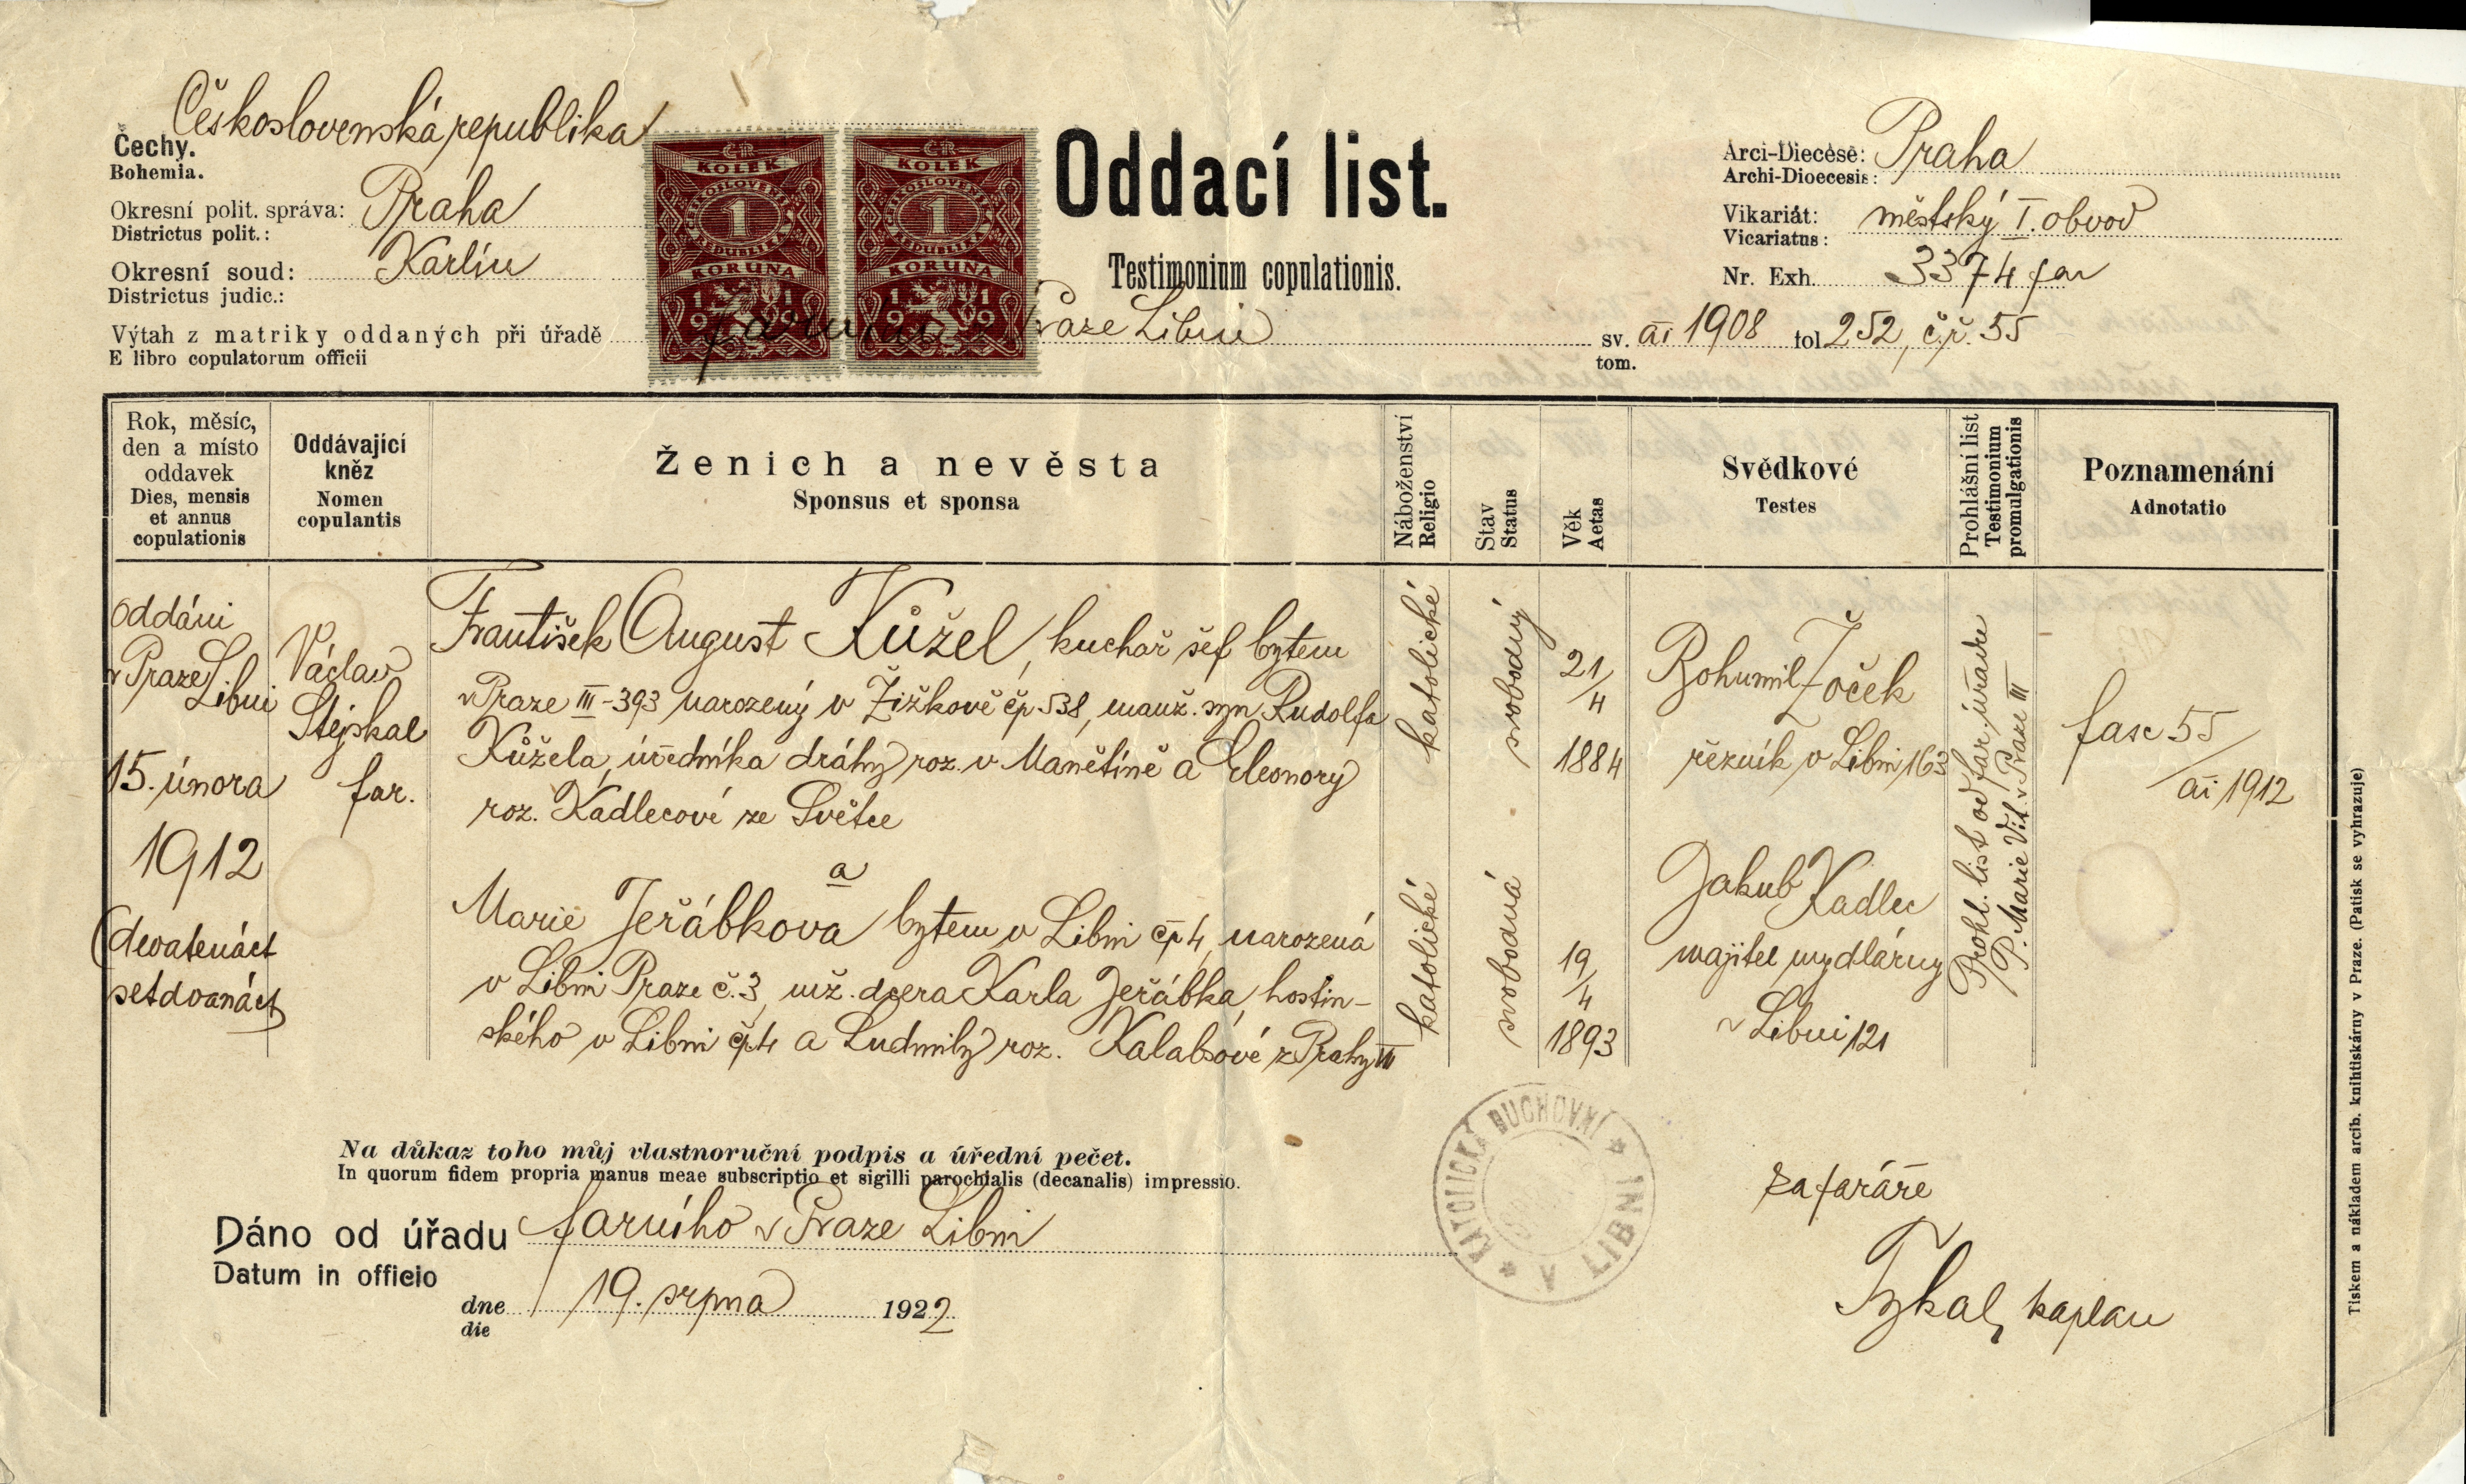 Československá republika
Čechy.
Bohemia.
Okresní polit. správa: Praha
Districtus polit.:
Okresní soud: Karlín
Districtus judic.:
Výtah z matriky oddaných při úřadě farním v Praze Libni
E libro copulatorum officii
ČR
KOLEK
ČESKOSLOVENSKÁ
1
REPUBLIKA
KORUNA
1919
ČR
KOLEK
ČESKOSLOVENSKÁ
1
REPUBLIKA
KORUNA
1919
Oddací list.
Testimonium copulationis.
Arci-Diecése: Praha
Archi-Dioecesis:
Vikariát: městský I. obvod
Vicariatus:
Nr. Exh. 3374 far
sv. ai 1908 fol 252, č.ř. 55
tom.
Rok, měsíc,
den a místo
oddavek
Dies, mensis
et annus
copulationis
Oddávající
kněz
Nomen
copulantis
Ženich a nevěsta
Sponsus et sponsa
Náboženství
Religio
Stav
Status
Věk
Aetas
Svědkové
Testes
Prohlášní list
Testimonium
promulgationis
Poznamenání
Adnotatio
Oddáni
v Praze
Libni
15. února
1912
(devatenáct
setdvanáct)
Václav
Stejskal
far.
František August Kůžel, kuchař šéf bytem
v Praze III-393 narozený v Žižkově čp 538, manž. syn Rudolfa
Kůžela, úředníka dráhy roz. v Manětíně a Eleonory
roz. Kadlecové ze Světce
a
Marie Jeřábkova bytem v Libni čp 4, narozená
v Libni Praze č. 3, mž. dcera Karla Jeřábka, hostin-
ského v Libni čp 4 a Ludmily roz. Kalabsové z Prahy III
katolické
svobodný
21/4
1884
katolické
svobodná
19/4
1893
Bohumil Zoček
řezník v Libni 163
Jakub Kadlec
majitel mydlárny
v Libni 121
Prohl. list od far. úřadu
P. Marie Vít. v Praze III
fasc 55/
ai 1912
Na důkaz toho můj vlastnoruční podpis a úřední pečet.
In quorum fidem propria manus meae subscriptio et sigilli parochialis (decanalis) impressio.
Dáno od úřadu farního v Praze Libni
Datum in officio
dne 19. srpna 1922.
die
KATOLICKÁ DUCHOVNÍ
SPRÁVA
V LIBNI
za faráře
Tykal, kaplan
Tiskem a nákladem arcib. knihtiskárny v Praze. (Patisk se vyhrazuje)